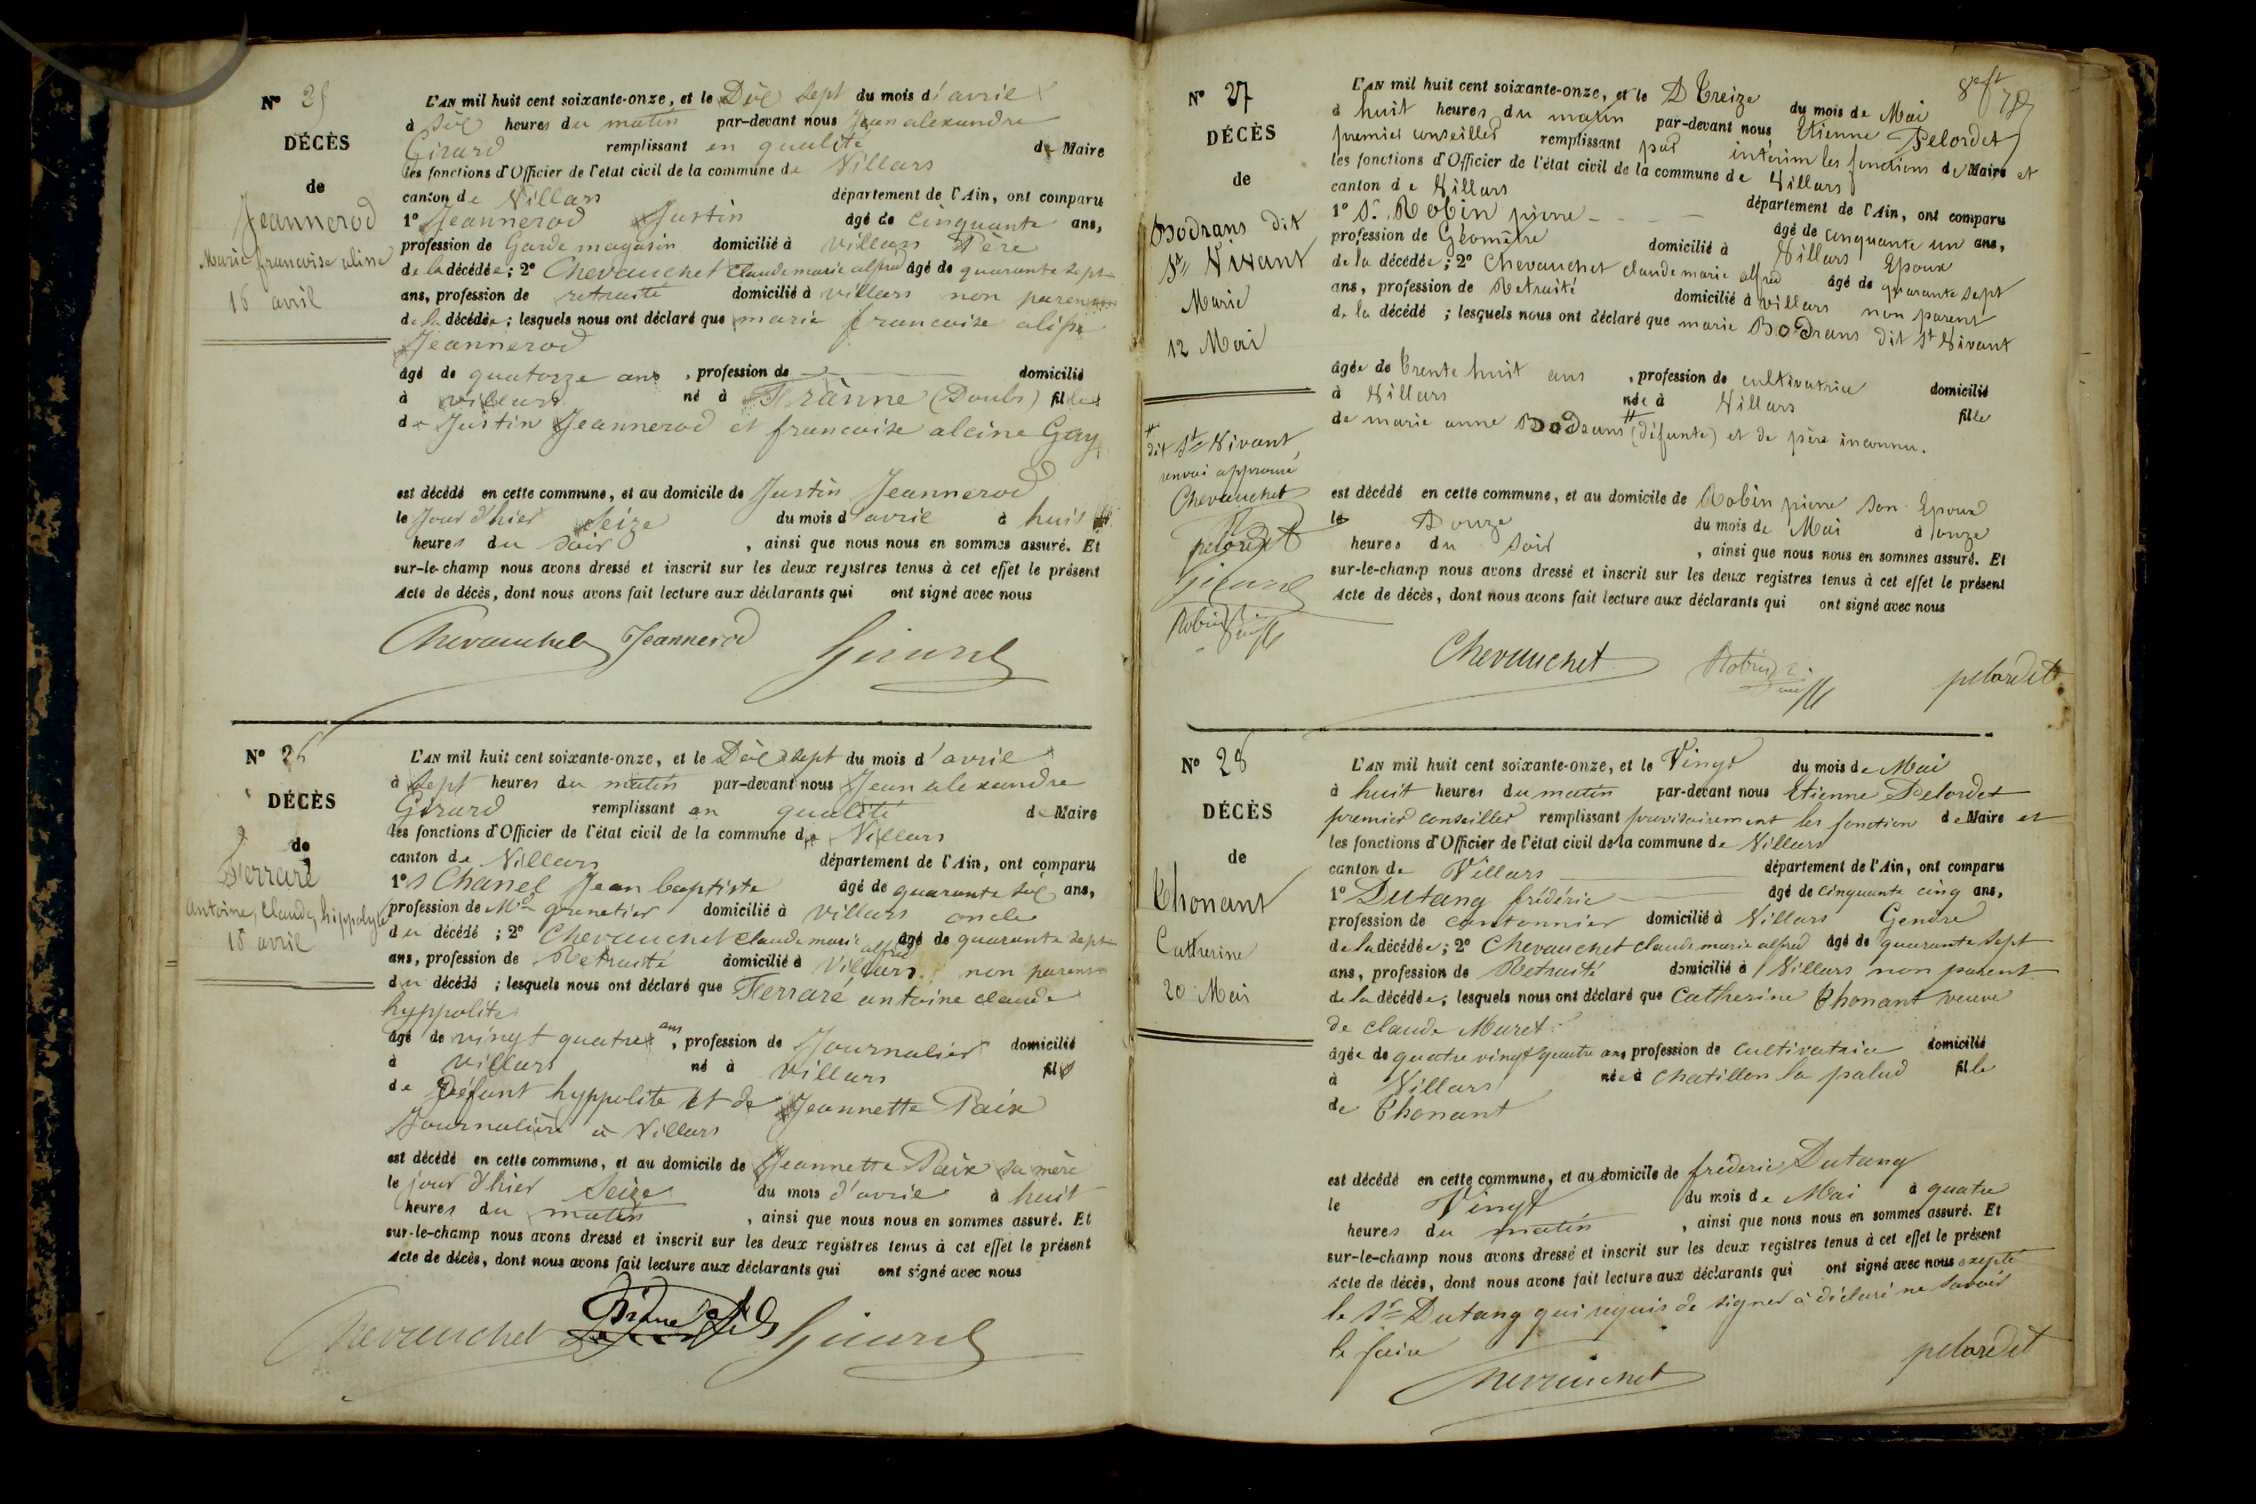 N° 25
DÉCÈS
de
Jeannerod
Marie francoise aline
16 avril
L'AN mil huit cent soixante-onze, et le Dix sept du mois d'avril
à six heures du matin par-devant nous Jean alexandre
Girard remplissant en qualité de Maire
les fonctions d'Officier de l'état civil de la commune de Villars
canton de Villars département de l'Ain, ont comparu
1° Jeannerod Justin âgé de cinquante ans,
profession de Garde magasin domicilié à Villars Père
de la décédée; 2° Chevauchet Claude marie alfred âgé de quarante sept
ans, profession de retraité domicilié à villars non parent
de la décédée; lesquels nous ont déclaré que marie francoise aline
Jeannerod
âgé de quatorze ans, profession de domicilié
à villars né à Franne (Doubs) fille
de Justin Jeannerod et francoise alcine Gay
est décédé en cette commune, et au domicile de Justin Jeannerod
le Jour d'hier Seize du mois d'avril à huit
heures du soir, ainsi que nous nous en sommes assuré. Et
sur-le-champ nous avons dressé et inscrit sur les deux registres tenus à cet effet le présent
Acte de décès, dont nous avons fait lecture aux déclarants qui ont signé avec nous
Chevauchet Jeannerod Girard
N° 26
DÉCÈS
de
Ferraré
Antoine, Claude, hippolyte
16 avril
L'AN mil huit cent soixante-onze, et le Dix sept du mois d'avril
à sept heures du matin par-devant nous Jean alexandre
Girard remplissant en qualité de Maire
les fonctions d'Officier de l'état civil de la commune de Villars
canton de Villars département de l'Ain, ont comparu
1° s Chanel Jean baptiste âgé de quarante six ans,
profession de Md grenetier domicilié à Villars oncle
du décédé; 2° Chevauchet Claude marie alfred âgé de quarante sept
ans, profession de Retraité domicilié à Villars non parent
du décédé; lesquels nous ont déclaré que Ferraré antoine claude
hyppolite
âgé de vingt quatre ans, profession de Journalier domicilié
à villars né à Villars fils
de Défunt hyppolite et de Jeannette Paix
Journalière à Villars
est décédé en cette commune, et au domicile de Jeannette Paix sa mère
le jour d'hier Seize du mois d'avril à huit
heures du matin, ainsi que nous nous en sommes assuré. Et
sur-le-champ nous avons dressé et inscrit sur les deux registres tenus à cet effet le présent
Acte de décès, dont nous avons fait lecture aux déclarants qui ont signé avec nous
Chevauchet Girard
N° 27
DÉCÈS
de
Bodrans dit
St Vivant
Marie
12 Mai
dit St Vivant
renvoi approuvé
Chevauchet
pelordet
Girard
Robin
L'AN mil huit cent soixante-onze, et le Treize du mois de Mai
à huit heures du matin par-devant nous Etienne Pelordet
premier conseiller remplissant par intérim les fonctions de Maire et
les fonctions d'Officier de l'état civil de la commune de Villars
canton de Villars département de l'Ain, ont comparu
1° Sr. Robin pierre âgé de cinquante un ans,
profession de Géomètre domicilié à Villars Epoux
de la décédée; 2° Chevauchet claude marie alfred âgé de quarante sept
ans, profession de Retraité domicilié à villars non parent
de la décédé; lesquels nous ont déclaré que marie Bodrans dit St Vivant
âgée de trente huit ans, profession de cultivatrice domicilié
à Villars née à Villars fille
de marie anne Bodrans (défunte) et de père inconnu.
est décédé en cette commune, et au domicile de Robin pierre son Epoux
le Douze du mois de Mai à onze
heures du soir, ainsi que nous nous en sommes assuré. Et
sur-le-champ nous avons dressé et inscrit sur les deux registres tenus à cet effet le présent
Acte de décès, dont nous avons fait lecture aux déclarants qui ont signé avec nous
Chevauchet Robin pelordet
N° 28
DÉCÈS
de
Thonant
Catherine
20 Mai
L'AN mil huit cent soixante-onze, et le Vingt du mois de Mai
à huit heures du matin par-devant nous Etienne Pelordet
premier conseiller remplissant provisoirement les fonction de Maire et
les fonctions d'Officier de l'état civil de la commune de Villars
canton de Villars département de l'Ain, ont comparu
1° Dutang frédéric âgé de cinquante cinq ans,
profession de cantonnier domicilié à Villars Gendre
de la décédée; 2° Chevauchet claude marie alfred âgé de quarante sept
ans, profession de Retraité domicilié à Villars non parent
de la décédée; lesquels nous ont déclaré que Catherine Thonant veuve
de claude Muret
âgée de quatre vingt quatre ans profession de Cultivatrice domicilié
à Villars née à Chatillon la palud fille
de Thonant
est décédé en cette commune, et au domicile de frédéric Dutang
le Vingt du mois de Mai à quatre
heures du matin, ainsi que nous nous en sommes assuré. Et
sur-le-champ nous avons dressé et inscrit sur les deux registres tenus à cet effet le présent
Acte de décès, dont nous avons fait lecture aux déclarants qui ont signé avec nous exepté
le Sr Dutang qui requis de signer à déclaré ne savoir
le faire
Chevauchet pelordet